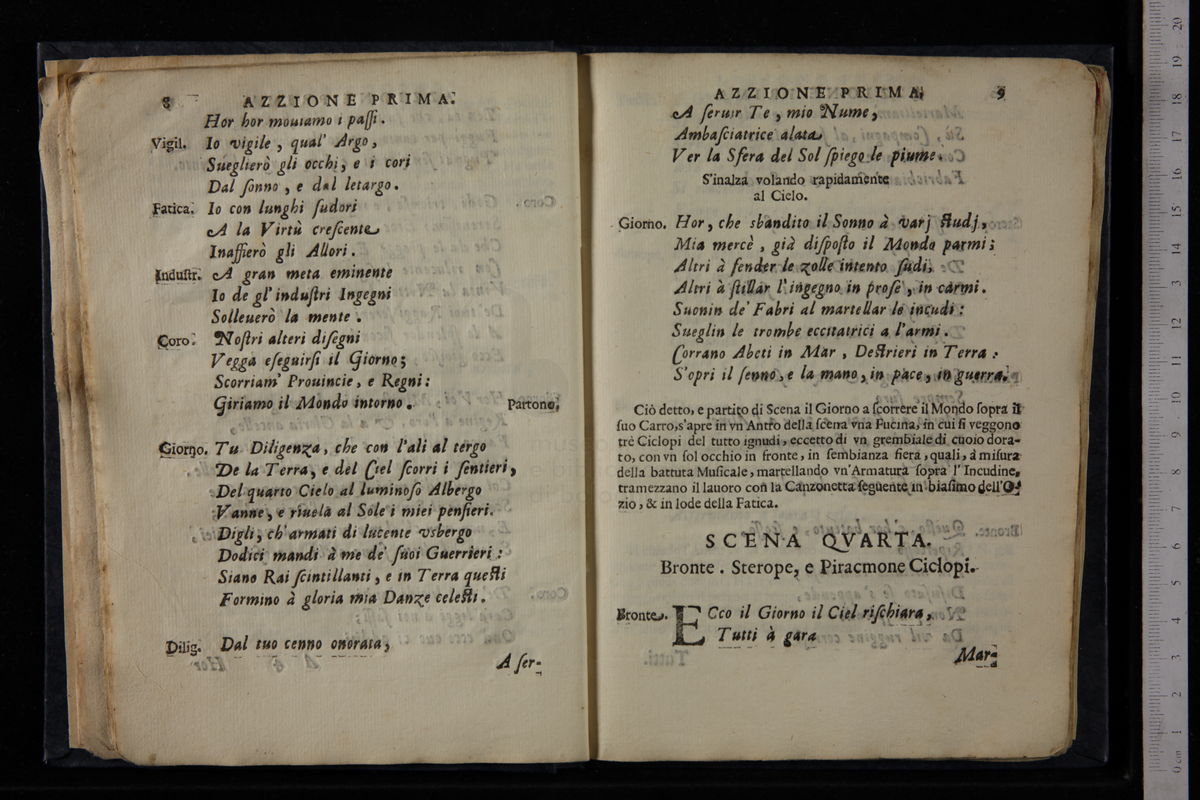 8 AZZIONE PRIMA.
Hor hor mouiamo i passi.
Vigil. Io vigile, qual' Argo,
Sueglierò gli occhi, e i cori
Dal sonno, e dal letargo.
Fatica. Io con lunghi sudori
A la Virtù crescente
Inaffierò gli Allori.
Industr. A gran meta eminente
Io de gl'industri Ingegni
Solleuerò la mente.
Coro. Nostri alteri disegni
Vegga eseguirsi il Giorno;
Scorriam' Prouincie, e Regni:
Giriamo il Mondo intorno. Partono.
Giorno. Tu Diligenza, che con l'ali al tergo
De la Terra, e del Ciel scorri i sentieri,
Del quarto Cielo al luminoso Albergo
Vanne, e riuela al Sole i miei pensieri.
Digli, ch'armati di lucente vsbergo
Dodici mandi à me de' suoi Guerrieri:
Siano Rai scintillanti, e in Terra questi
Formino à gloria mia Danze celesti.
Dilig. Dal tuo cenno onorata,
A ser-
AZZIONE PRIMA. 9
A seruir Te, mio Nume,
Ambasciatrice alata
Ver la Sfera del Sol spiego le piume.
S'inalza volando rapidamente
al Cielo.
Giorno. Hor, che sbandito il Sonno à varj studj,
Mia mercè, già disposto il Mondo parmi;
Altri à fender le zolle intento sudi,
Altri à stillar l'ingegno in prose, in carmi.
Suonin de' Fabri al martellar le incudi:
Sueglin le trombe eccitatrici a l'armi.
Corrano Abeti in Mar, Destrieri in Terra:
S'opri il senno, e la mano, in pace, in guerra.
Ciò detto, e partito di Scena il Giorno a scorrere il Mondo sopra il
suo Carro, s'apre in vn Antro della scena vna Fucina, in cui si veggono
trè Ciclopi del tutto ignudi, eccetto di vn grembiale di cuoio dora-
to, con vn sol occhio in fronte, in sembianza fiera, quali, à misura
della battuta Musicale, martellando vn'Armatura sopra l'Incudine,
tramezzano il lauoro con la Canzonetta seguente in biasimo dell'O-
zio, & in lode della Fatica.
SCENA QVARTA.
Bronte. Sterope, e Piracmone Ciclopi.
Bronte. ECco il Giorno il Ciel rischiara,
Tutti à gara
Mar-